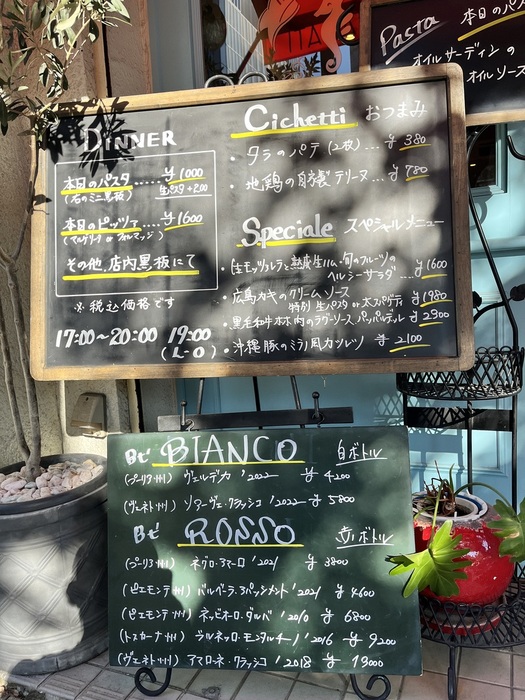 Pasta 本日のパス
オイルサーディンの
オイルソース
DINNER
本日のパスタ……¥1000
(右のミニ黒板) 生パスタ+200
本日のピッツァ……¥1600
(マルゲリータ or フォルマッジ)
その他、店内黒板にて
※税込価格です
17:00~20:00 19:00
(L-O)
Cichetti おつまみ
・タラのパテ(2枚)…¥380
・地鶏の自家製テリーヌ…¥780
Speciale スペシャルメニュー
・生モッツァレラと熟成生ハム・旬のフルーツの
ヘルシーサラダ…¥1600
・広島カキのクリームソース
特別 生パスタ or スパゲティ ¥1980
・黒毛和牛ホホ肉のラグーソース、パッパルデッレ ¥2900
・沖縄豚のミラノ風カツレツ ¥2100
BIANCO 白ボトル
(プーリア州) ヴェルデカ '2022 ¥4200
(ヴェネト州) ソアーヴェ・クラッシコ '2022 ¥5800
ROSSO 赤ボトル
(プーリア州) ネグロ・アマーロ '2021 ¥3800
(ピエモンテ州) バルベーラ・アパッシメント '2021 ¥4600
(ピエモンテ州) ネッビオーロ・ダルバ '2010 ¥6800
(トスカーナ州) '2016 ¥9200
(ヴェネト州) アマローネ・クラッシコ '2018 ¥19000